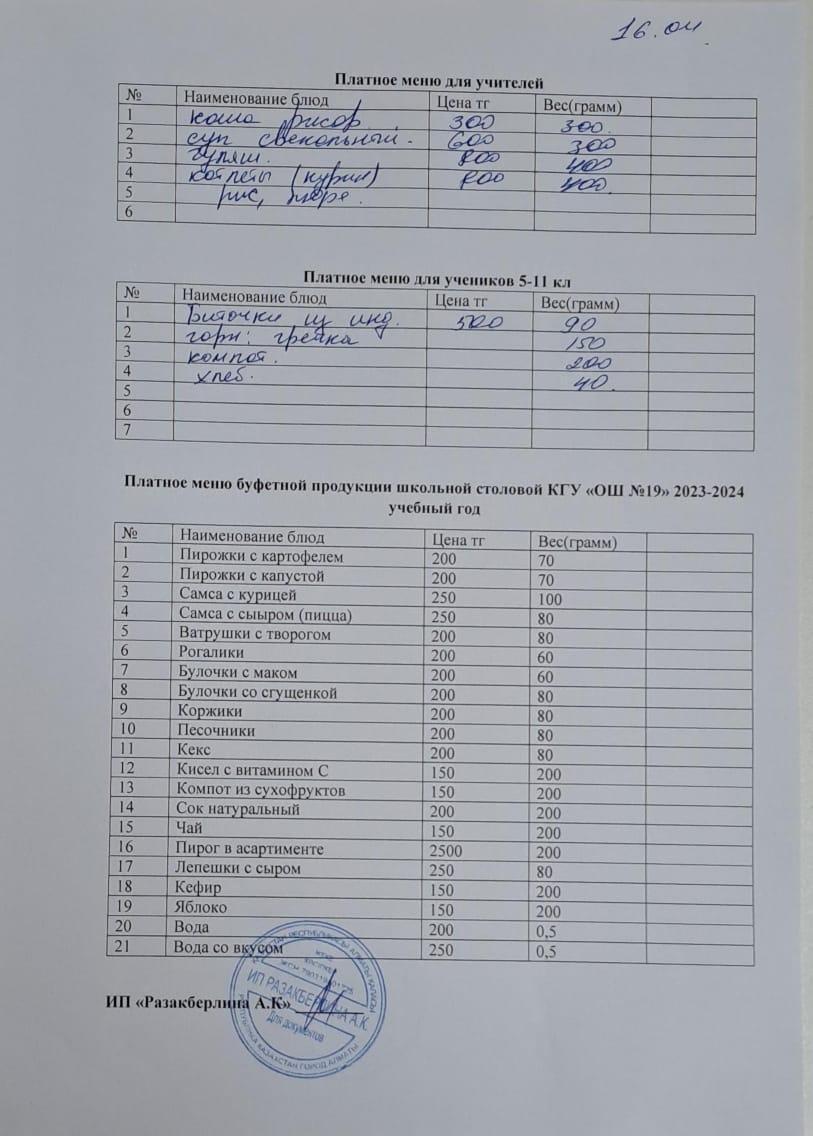 16.04.
Платное меню для учителей
№ Наименование блюд Цена тг Вес(грамм)
1 каша рисов. 300 300.
2 суп свекольный. 600 300
3 гуляш. 800 400
4 котлеты (курин) 800 400.
5 рис, пюре.
6
Платное меню для учеников 5-11 кл
№ Наименование блюд Цена тг Вес(грамм)
1 Биточки из инд. 500 90
2 гарн: гречка 150
3 компот. 200
4 хлеб. 40.
5
6
7
Платное меню буфетной продукции школьной столовой КГУ «ОШ №19» 2023-2024
учебный год
№ Наименование блюд Цена тг Вес(грамм)
1 Пирожки с картофелем 200 70
2 Пирожки с капустой 200 70
3 Самса с курицей 250 100
4 Самса с сыыром (пицца) 250 80
5 Ватрушки с творогом 200 80
6 Рогалики 200 60
7 Булочки с маком 200 60
8 Булочки со сгущенкой 200 80
9 Коржики 200 80
10 Песочники 200 80
11 Кекс 200 80
12 Кисел с витамином С 150 200
13 Компот из сухофруктов 150 200
14 Сок натуральный 200 200
15 Чай 150 200
16 Пирог в асартименте 2500 200
17 Лепешки с сыром 250 80
18 Кефир 150 200
19 Яблоко 150 200
20 Вода 200 0,5
21 Вода со вкусом 250 0,5
ИП «Разакберлина А.К»
ИП РАЗАКБЕРЛИНА А.К.
Для документов
РЕСПУБЛИКА КАЗАХСТАН ГОРОД АЛМАТЫ